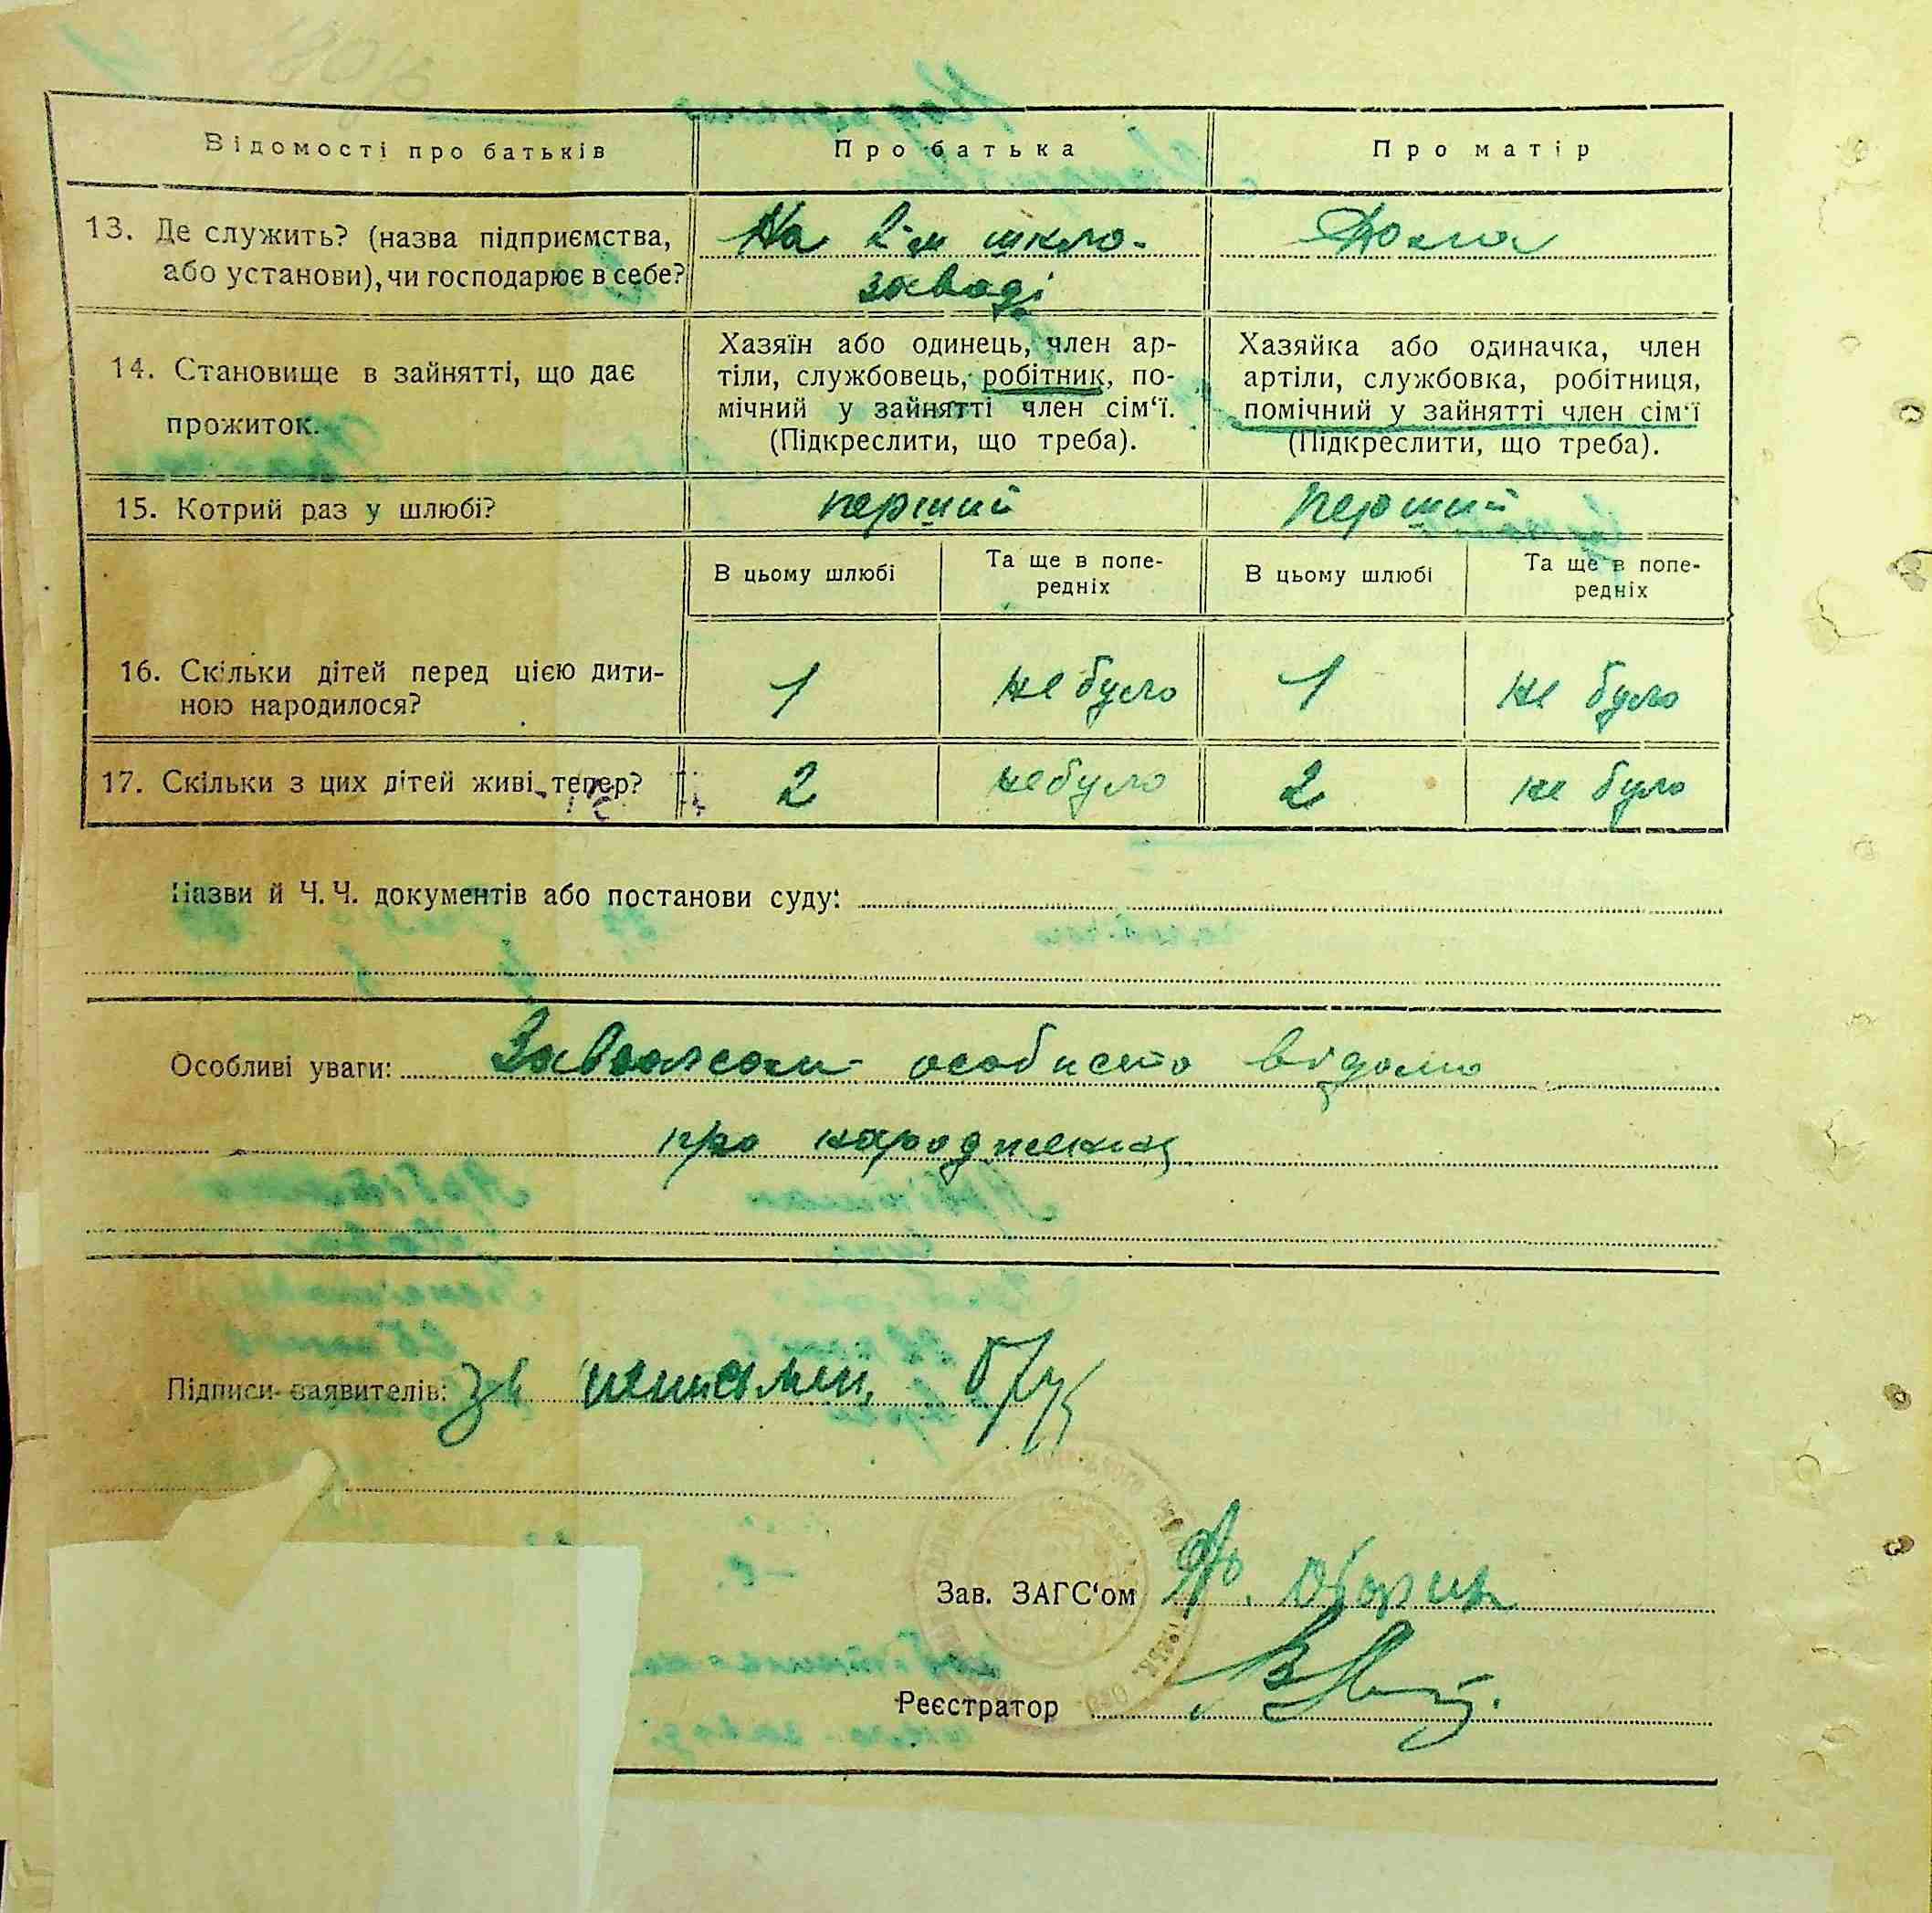 Відомості про батьків
Про батька
Про матір
13. Де служить? (назва підприємства,
або установи), чи господарює в себе?
На 2-м шкло-
заводі
Дома
14. Становище в зайнятті, що дає
прожиток.
Хазяїн або одинець, член ар-
тіли, службовець, робітник, по-
мічний у зайнятті член сім‘ї.
(Підкреслити, що треба).
Хазяйка або одиначка, член
артіли, службовка, робітниця,
помічний у зайнятті член сім‘ї
(Підкреслити, що треба).
15. Котрий раз у шлюбі?
перший
перший
В цьому шлюбі
Та ще в попе-
редніх
В цьому шлюбі
Та ще в попе-
редніх
16. Скільки дітей перед цією дити-
ною народилося?
1
не було
1
не було
17. Скільки з цих дітей живі тепер?
2
не було
2
не було
Назви й Ч. Ч. документів або постанови суду:
Особливі уваги: особисто відомо
про народження
Підписи заявителів:
Зав. ЗАГС‘ом
Реєстратор